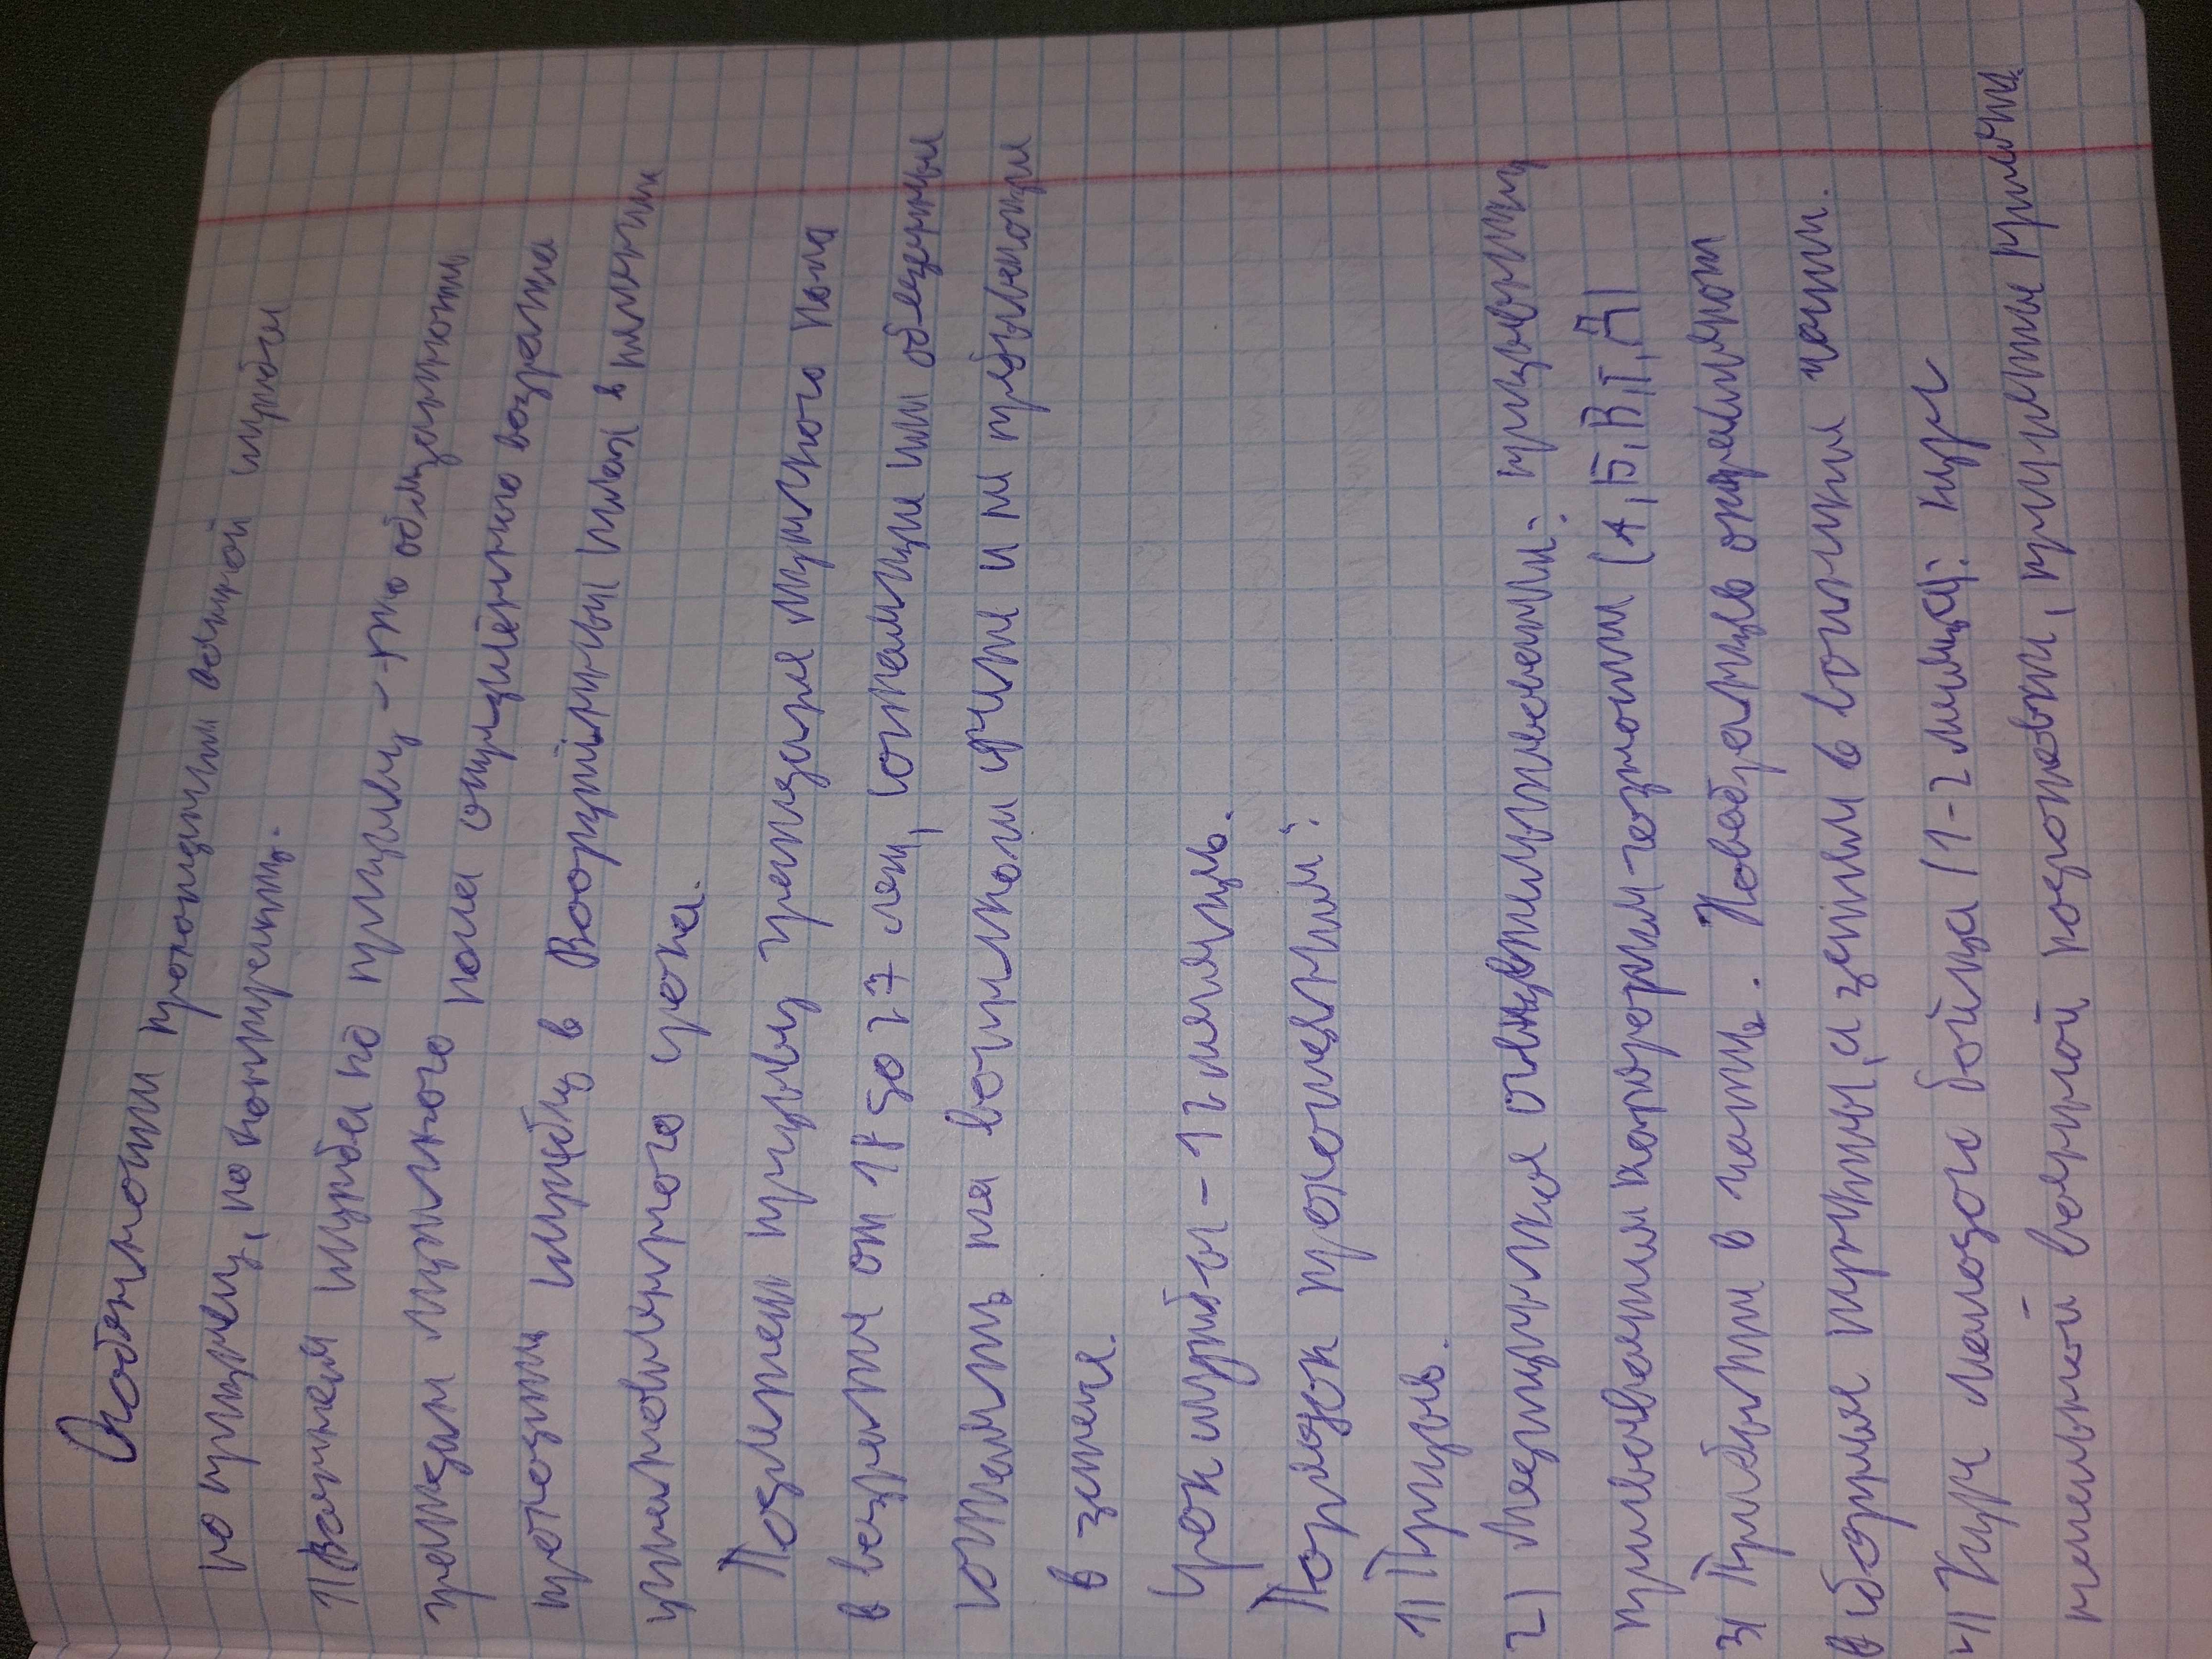 Особенности прохождения военной службы
по призыву, по контракту.
1) Военная служба по призыву - это обязанность
граждан мужского пола определённого возраста
проходить службу в Вооружённых силах в течении
установленного срока.
Подлежат призыву граждане мужского пола
в возрасте от 18 до 27 лет, состоящие или обязанные
состоять на воинском учёте и не пребывающие
в запасе.
Срок службы - 12 месяцев.
Порядок прохождения:
1) Призыв.
2) Медицинское освидетельствование: призывнику
присваивается категория годности (А, Б, В, Г, Д)
3) Прибытие в часть. Новобранцев отправляют
в сборные пункты, а затем в воинские части.
4) Курс молодого бойца (1-2 месяца): курс
начальной военной подготовки, принятие присяги.